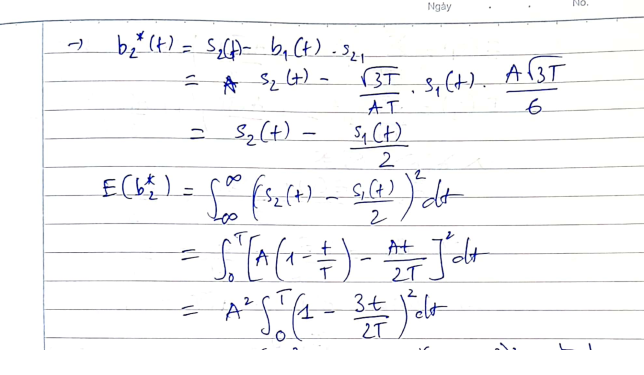 Ngày . . No.
→ b₂*(t) = s₂(t) - b₁(t) . s₂₁
= s₂(t) - √3T/AT . s₁(t) . A√3T/6
= s₂(t) - s₁(t)/2
E(b₂*) = ∫_{-∞}^{∞} (s₂(t) - s₁(t)/2)² dt
= ∫₀ᵀ [A(1 - t/T) - At/2T]² dt
= A² ∫₀ᵀ (1 - 3t/2T)² dt